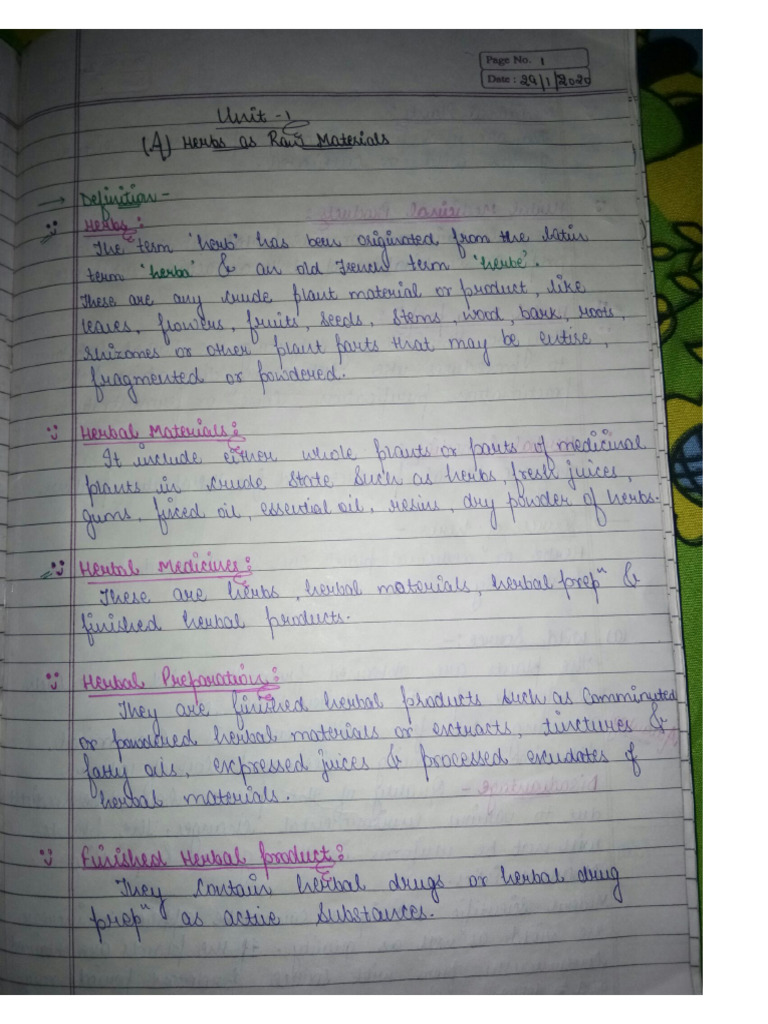 Page No. 1
Date : 29/1/2020
Unit - 1
(A) Herbs as Raw Materials
→ Definition -
Herbs :
The term 'herb' has been originated from the latin
term 'herba' & an old French term 'herbe'.
These are any crude plant material or product, like
leaves, flowers, fruits, seeds, stems, wood, bark, roots,
rhizomes or other plant parts that may be entire,
fragmented or powdered.
Herbal Materials :
It include either whole plants or parts of medicinal
plants in crude state such as herbs, fresh juices,
gums, fixed oil, essential oil, resins, dry powder of herbs.
Herbal Medicines :
These are herbs, herbal materials, herbal prepⁿ &
finished herbal products.
Herbal Preparation :
They are finished herbal products such as Comminuted
or powdered herbal materials or extracts, tinctures &
fatty oils, expressed juices & processed exudates of
herbal materials.
Finished Herbal product :
They contain herbal drugs or herbal drug
prepⁿ as active substances.